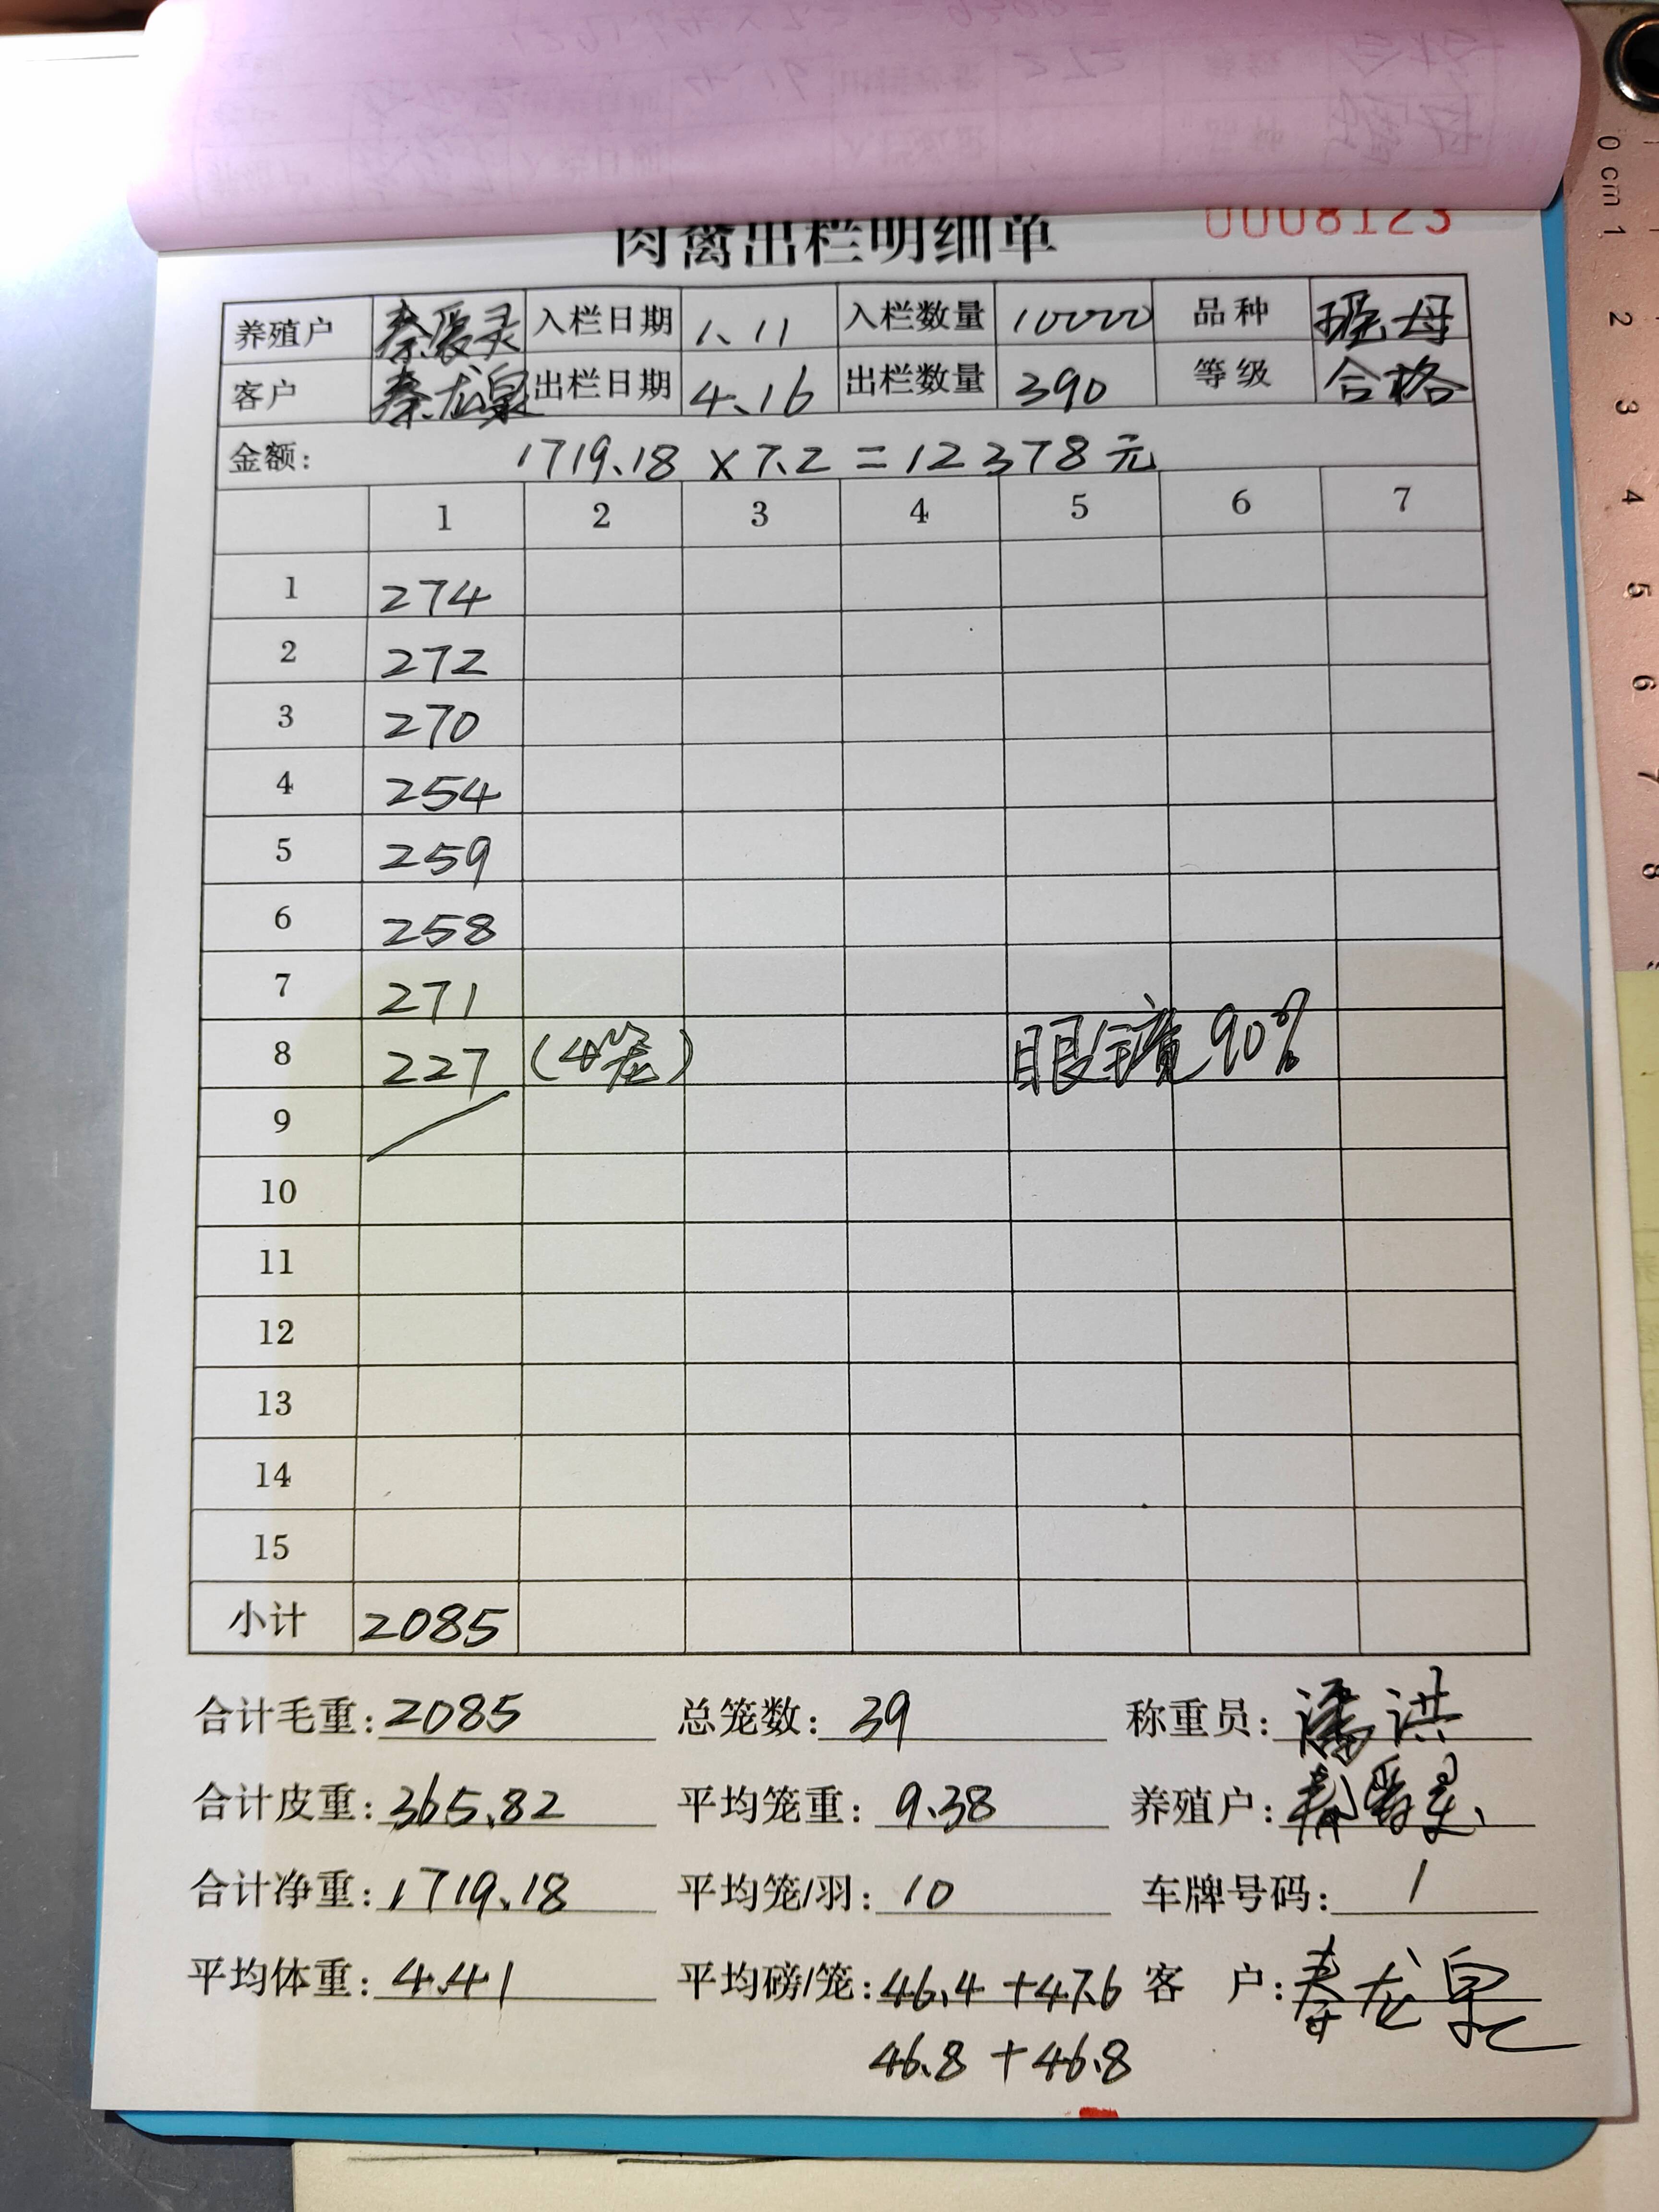 肉禽出栏明细单 0008123
养殖户 秦爱灵 入栏日期 1、11 入栏数量 10000 品种 瑶母
客户 秦龙泉 出栏日期 4、16 出栏数量 390 等级 合格
金额: 1719.18 × 7.2 = 12378元
1 2 3 4 5 6 7
1 274
2 272
3 270
4 254
5 259
6 258
7 271
8 227 (4笼) 眼镜90%
9
10
11
12
13
14
15
小计 2085
合计毛重: 2085 总笼数: 39 称重员: 潘洪
合计皮重: 365.82 平均笼重: 9.38 养殖户: 秦爱灵
合计净重: 1719.18 平均笼/羽: 10 车牌号码: 1
平均体重: 4.41 平均磅/笼: 46.4 + 47.6 客 户: 秦龙泉
46.8 + 46.8
0 cm 1 2 3 4 5 6 7 8